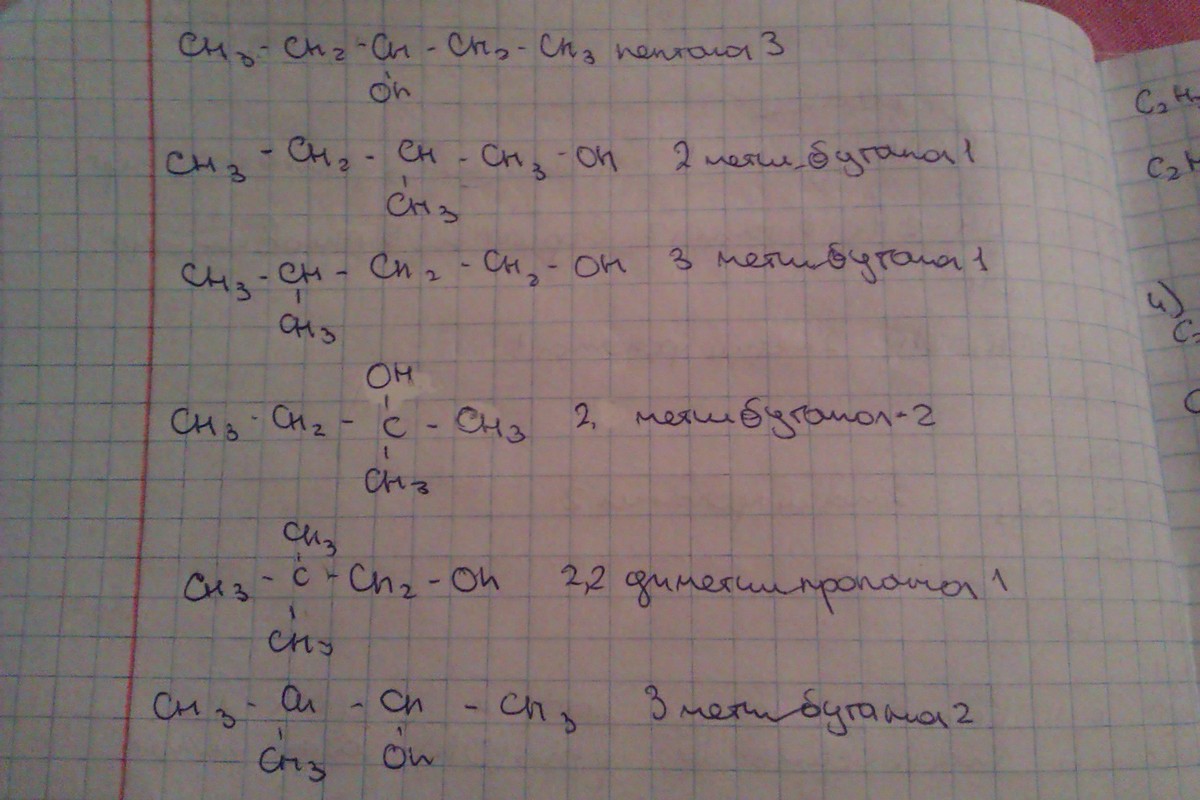 CH3 - CH2 - CH - CH2 - CH3 пентанол 3
OH
CH3 - CH2 - CH - CH3 - OH 2 метил бутанол 1
CH3
CH3 - CH - CH2 - CH2 - OH 3 метилбутанол 1
CH3
OH
CH3 - CH2 - C - CH3 2, метилбутанол-2
CH3
CH3
CH3 - C - CH2 - OH 2,2 диметилпропанол 1
CH3
CH3 - CH - CH - CH3 3 метилбутанол 2
CH3 OH
C2H
C2H
4)
C